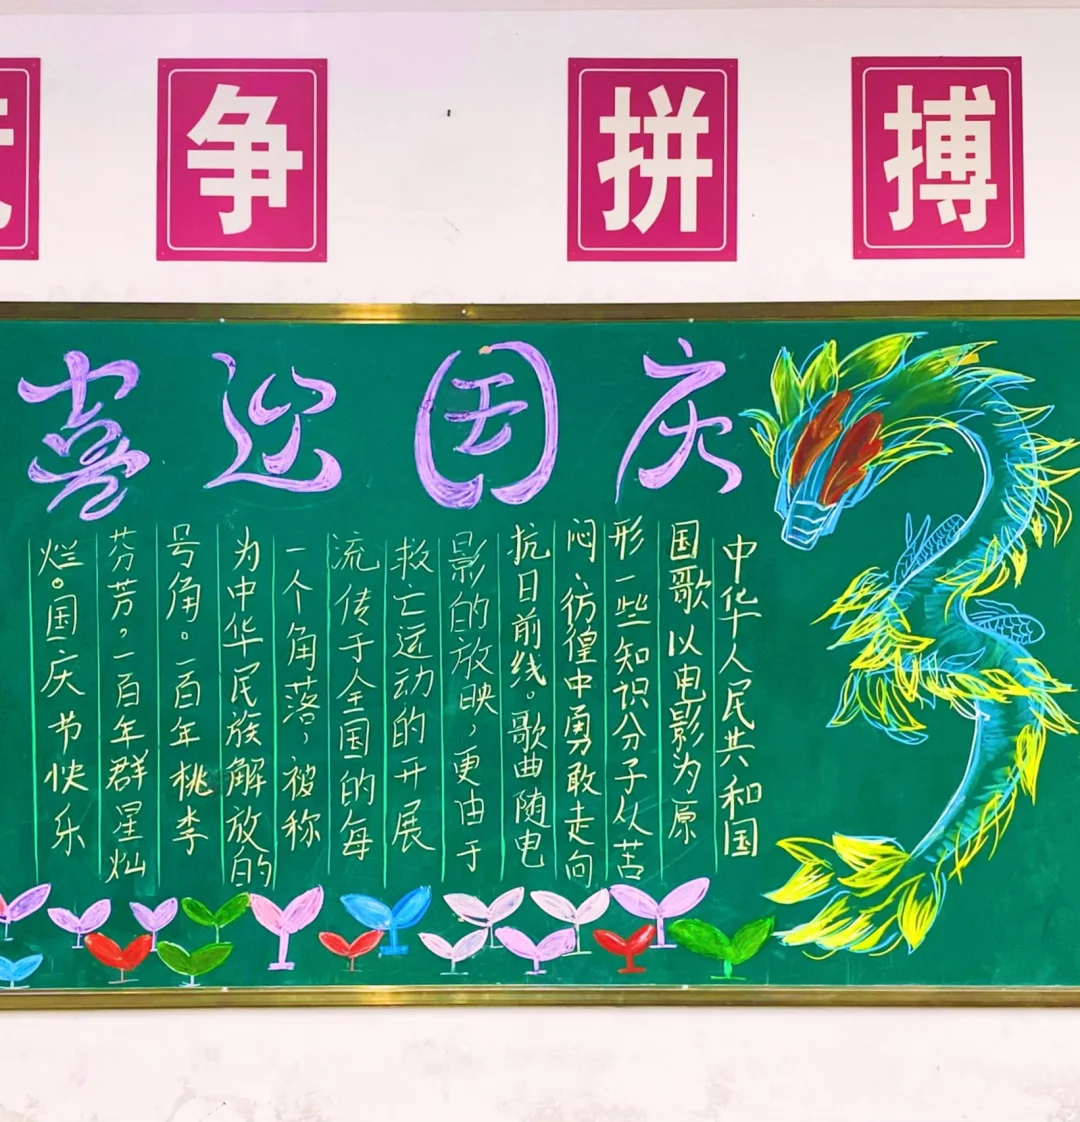 争 拼 搏
喜迎国庆
中华人民共和国
国歌以电影为原
形一些知识分子从苦
闷、彷徨中勇敢走向
抗日前线。歌曲随电
影的放映，更由于
救亡运动的开展
流传于全国的每
一个角落，被称
为中华民族解放的
号角。一百年桃李
芬芳。一百年群星灿
烂。国庆节快乐